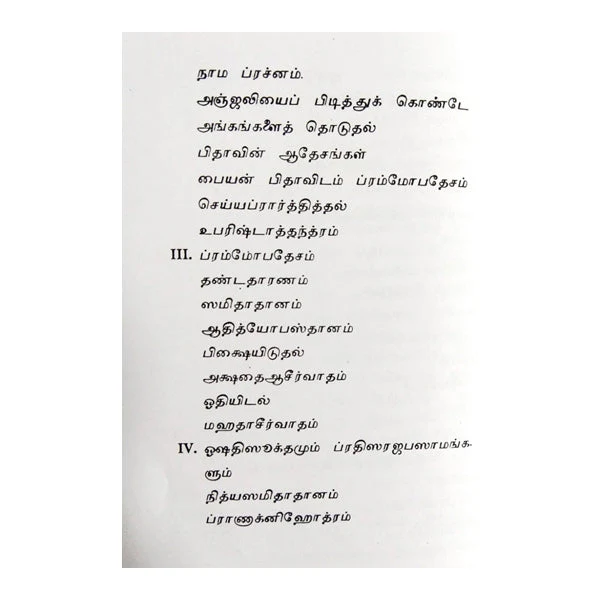 நாம ப்ரச்னம்.
அஞ்ஜலியைப் பிடித்துக் கொண்டே
அங்கங்களைத் தொடுதல்
பிதாவின் ஆதேசங்கள்
பையன் பிதாவிடம் ப்ரம்மோபதேசம்
செய்யப்ரார்த்தித்தல்
உபரிஷ்டாத்தந்த்ரம்
III. ப்ரம்மோபதேசம்
தண்டதாரணம்
ஸமிதாதானம்
ஆதித்யோபஸ்தானம்
பிக்ஷையிடுதல்
அக்ஷதைஆசீர்வாதம்
ஓதியிடல்
மஹதாசீர்வாதம்
IV. ஓஷதிஸூக்தமும் ப்ரதிஸரஜபஸாமங்க-
ளும்
நித்யஸமிதாதானம்
ப்ராணாக்னிஹோத்ரம்